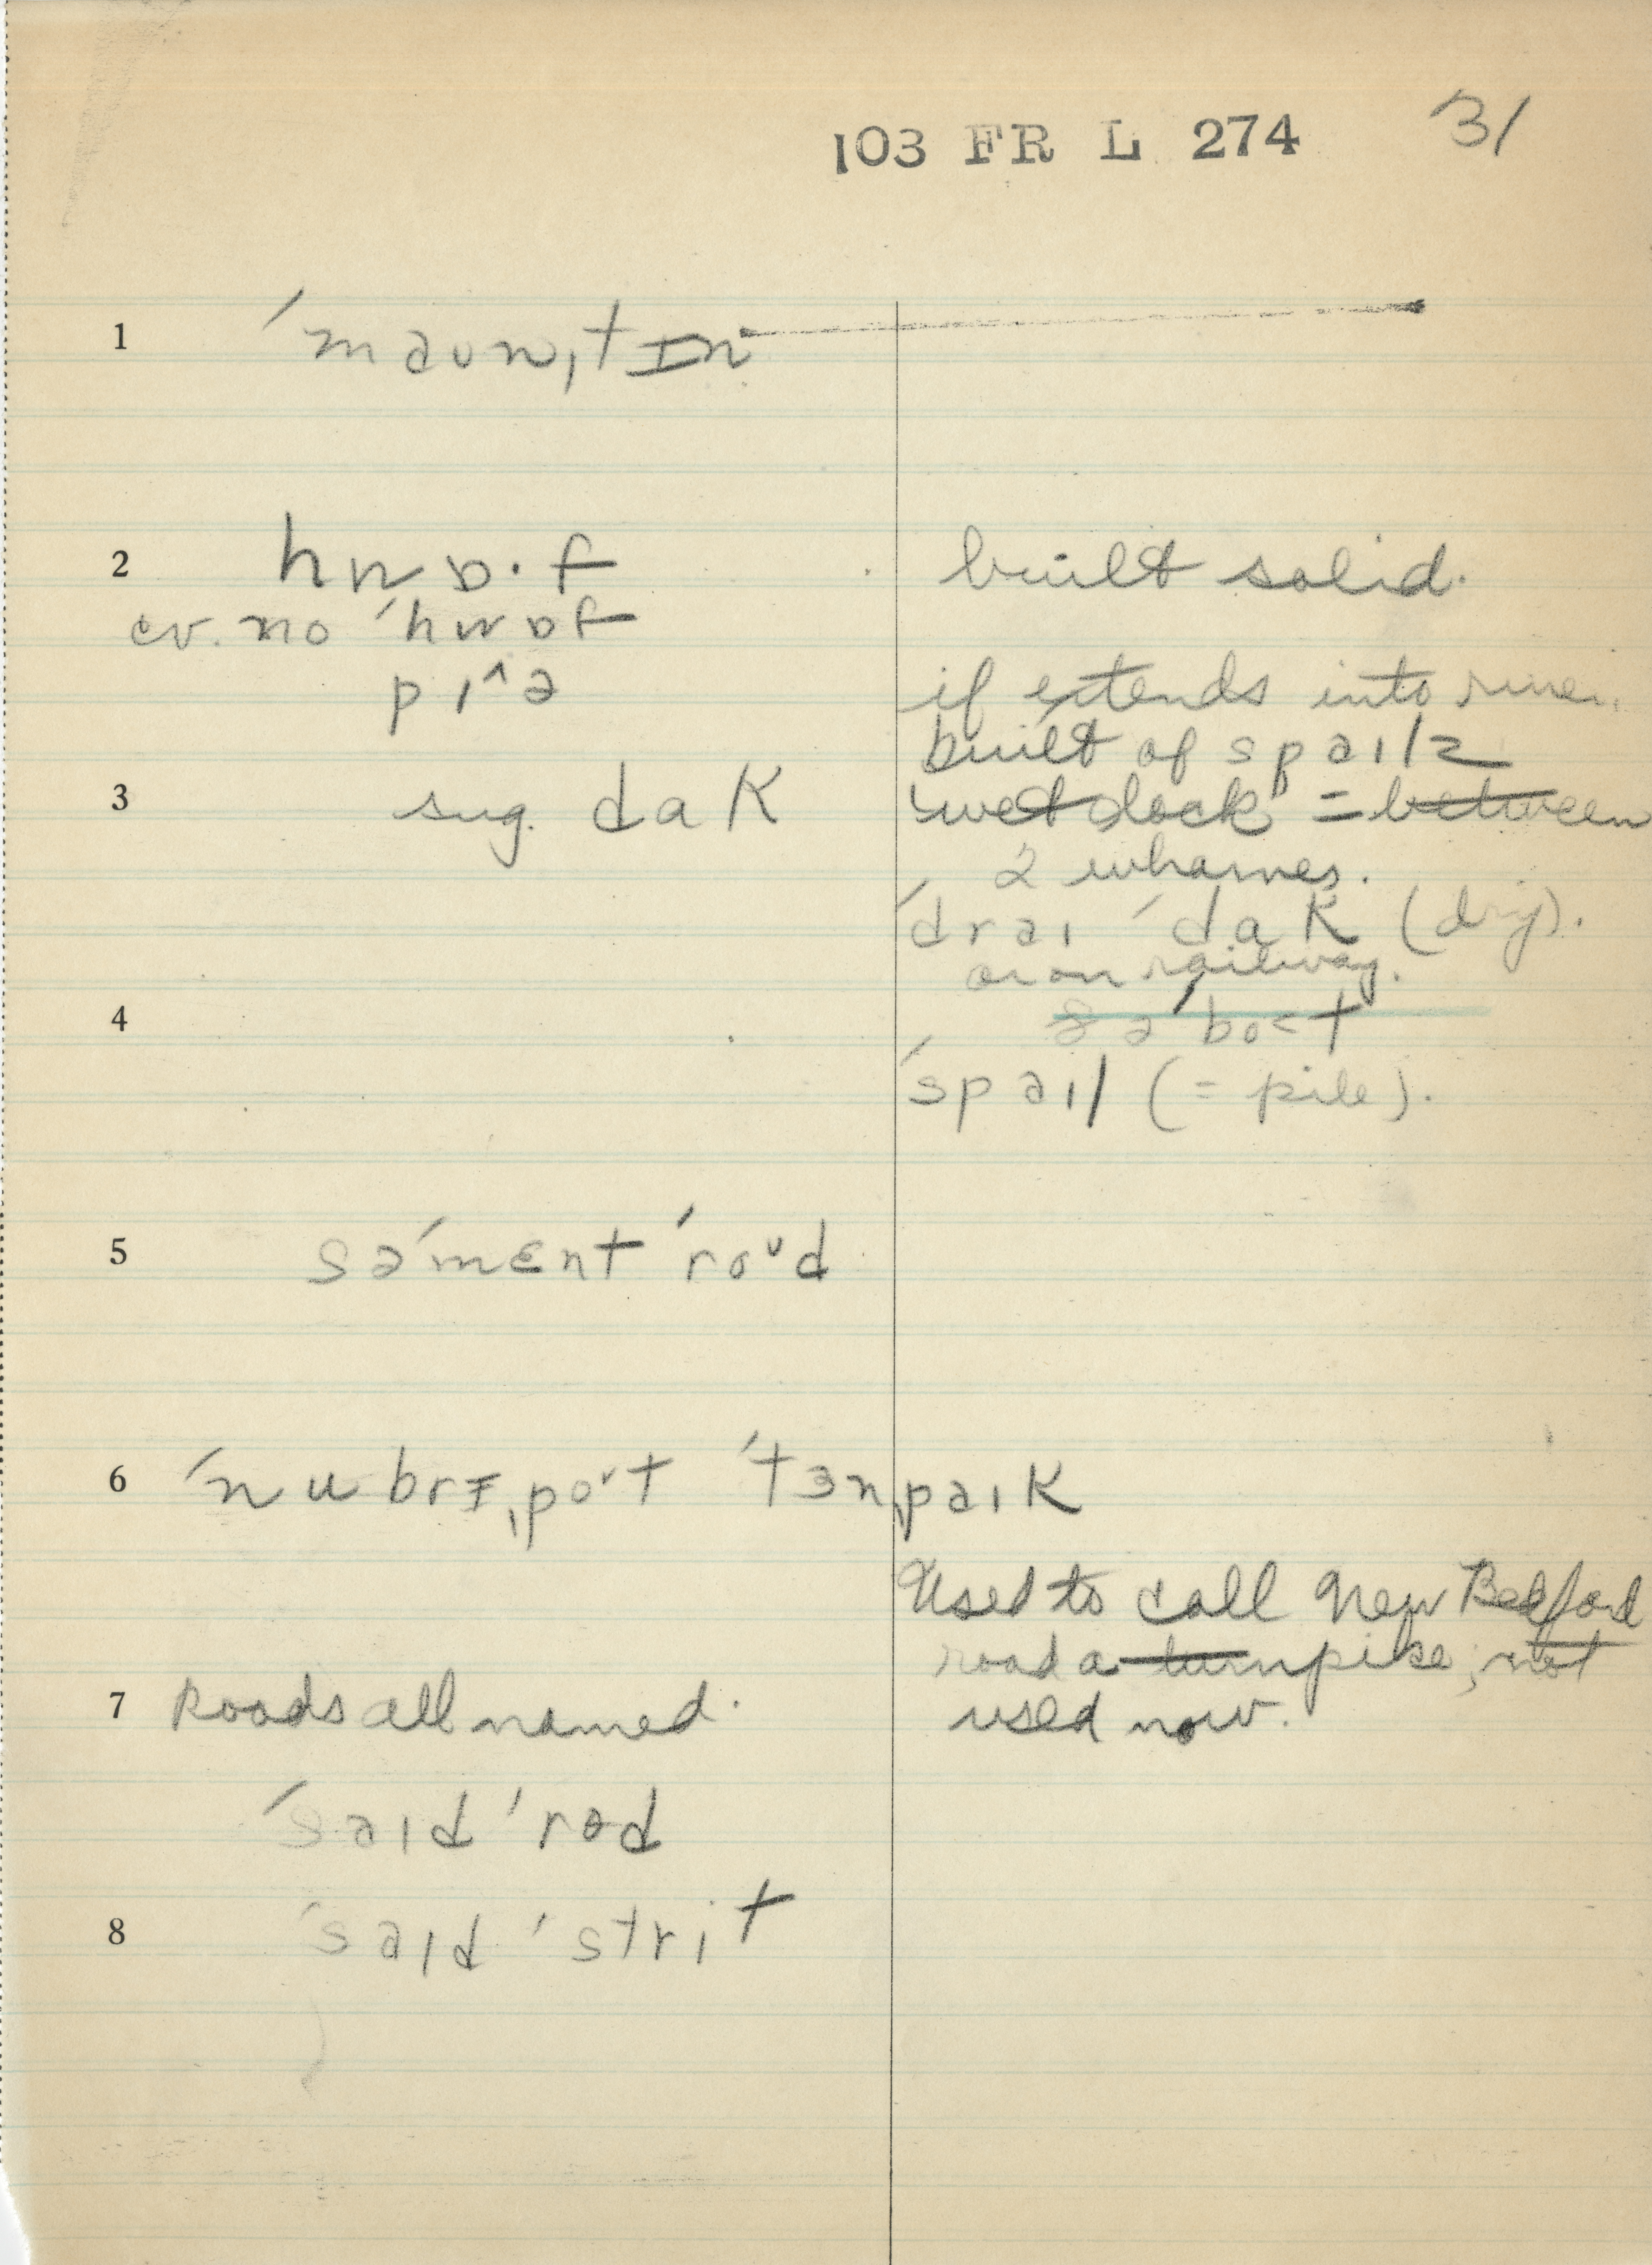 103 FR L 274 31
1 ˈmaʊnˌtɪn
2 hwɒ·f built solid.
cv. no ˈhwɒf
pɪ^ə if extends into river.
built of spaɪlz
3 sug. dak wet dock = between
2 wharves.
ˈdraɪ ˈdak (dry).
or on railway.
4
ˈspaɪl (= pile).
5 səˈmɛnt ˈroʊd
6 ˈnubrɪˌpoɚt ˈtɜnˌpaɪk
Used to call New Bedford
road a turnpike; not
used now.
7 Roads all named.
ˈsaɪd ˈrɵd
8 ˈsaɪd ˈstrit